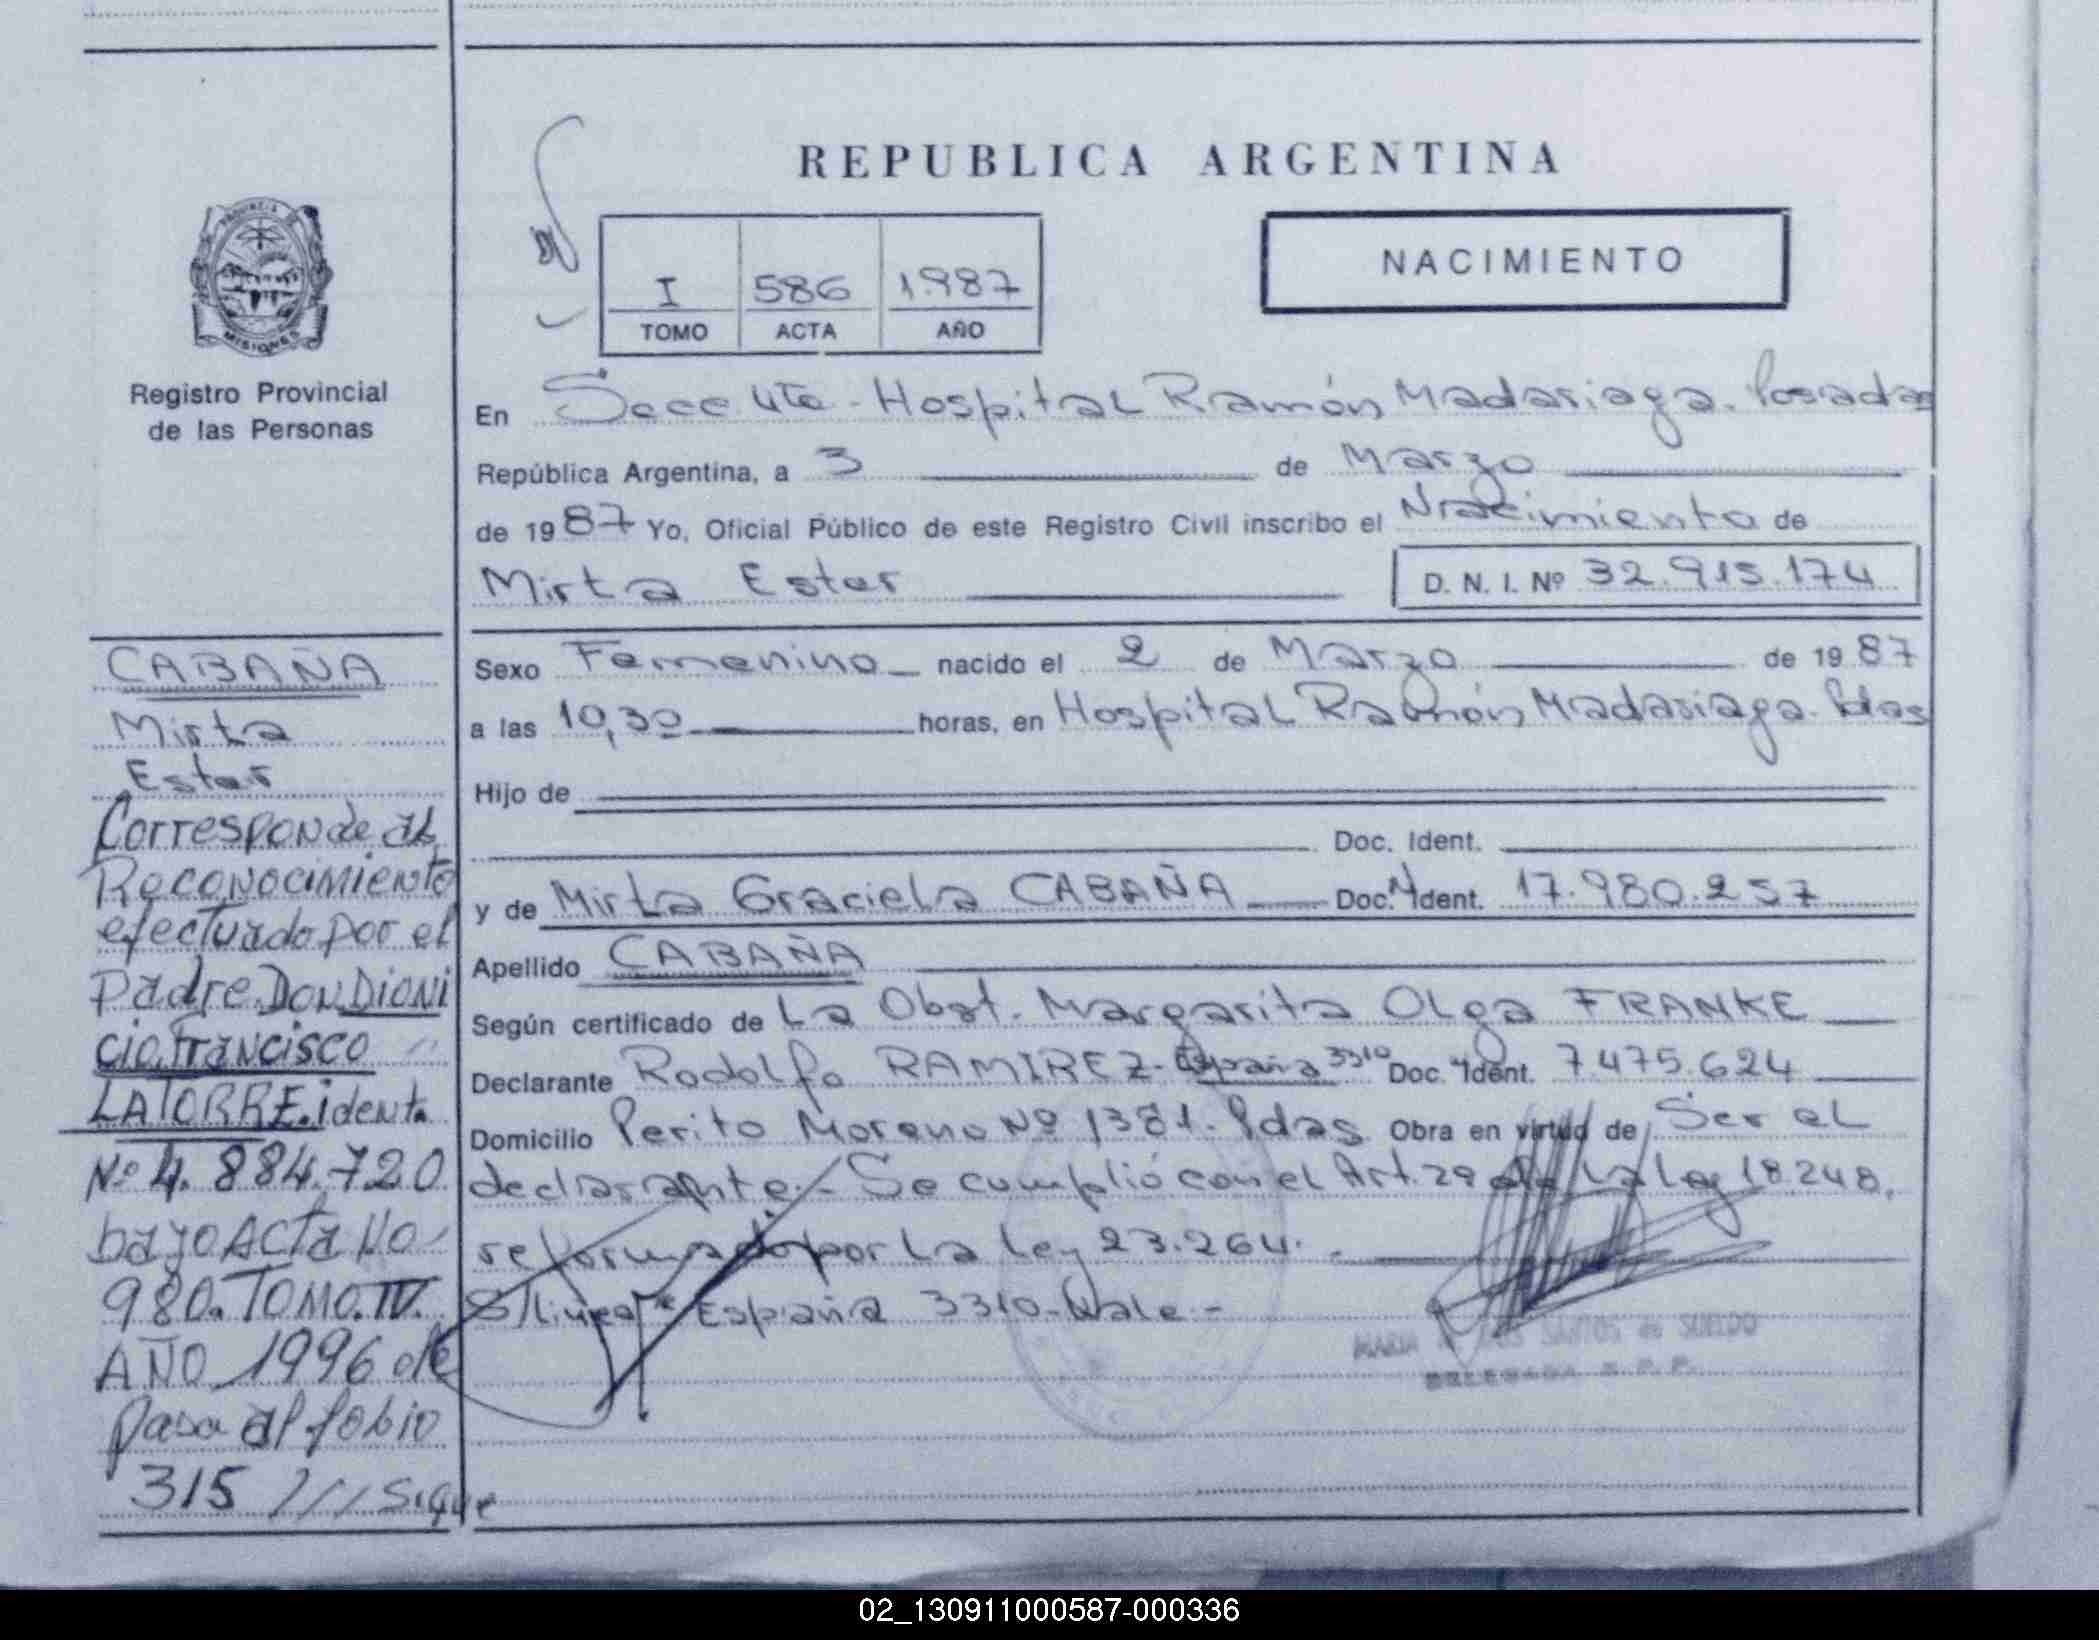 REPUBLICA ARGENTINA
NACIMIENTO
I 586 1987
TOMO ACTA AÑO
PROVINCIA DE
MISIONES
Registro Provincial
de las Personas
En Secc 4ta - Hospital Ramón Madariaga. Posadas
República Argentina, a 3 de Marzo
de 1987 Yo, Oficial Público de este Registro Civil inscribo el Nacimiento de
Mirta Ester D. N. I. Nº 32.915.174
Sexo Femenino nacido el 2 de Marzo de 1987
a las 10,30 horas, en Hospital Ramón Madariaga. Pdas
Hijo de
Doc. Ident.
y de Mirta Graciela CABAÑA Doc. Ident. 17.980.257
Apellido CABAÑA
Según certificado de La Obst. Margarita Olga FRANKE
Declarante Rodolfo RAMIREZ - España 3310 Doc. Ident. 7.475.624
Domicilio Perito Moreno Nº 1381. Pdas Obra en virtud de Ser el
declarante.- Se cumplió con el Art. 29 de la Ley 18.248,
reformado por la Ley 23.264. -
S/línea España 3310 - Vale.-
CABAÑA
Mirta
Ester
Corresponde al
Reconocimiento
efectuado por el
Padre DON DIONI
cio Francisco
LATORRE. ident.
Nº 4.884.720
bajo Acta No
980. TOMO. IV.
AÑO 1996 de
pasa al folio
315 /// sigue
02_130911000587-000336